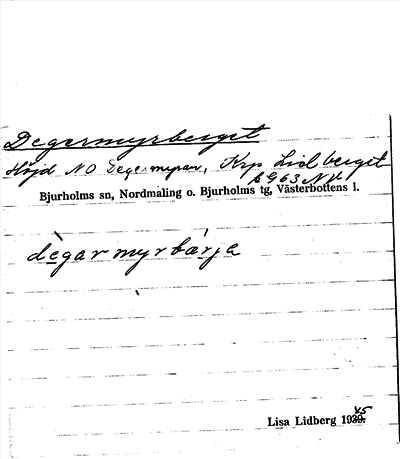 Degermyrberget
Höjd NO Degermyran, Krp Lidberget
6963 NV
Bjurholms sn, Nordmaling o. Bjurholms tg, Västerbottens l.
dègarmyrbárja
Lisa Lidberg 1945